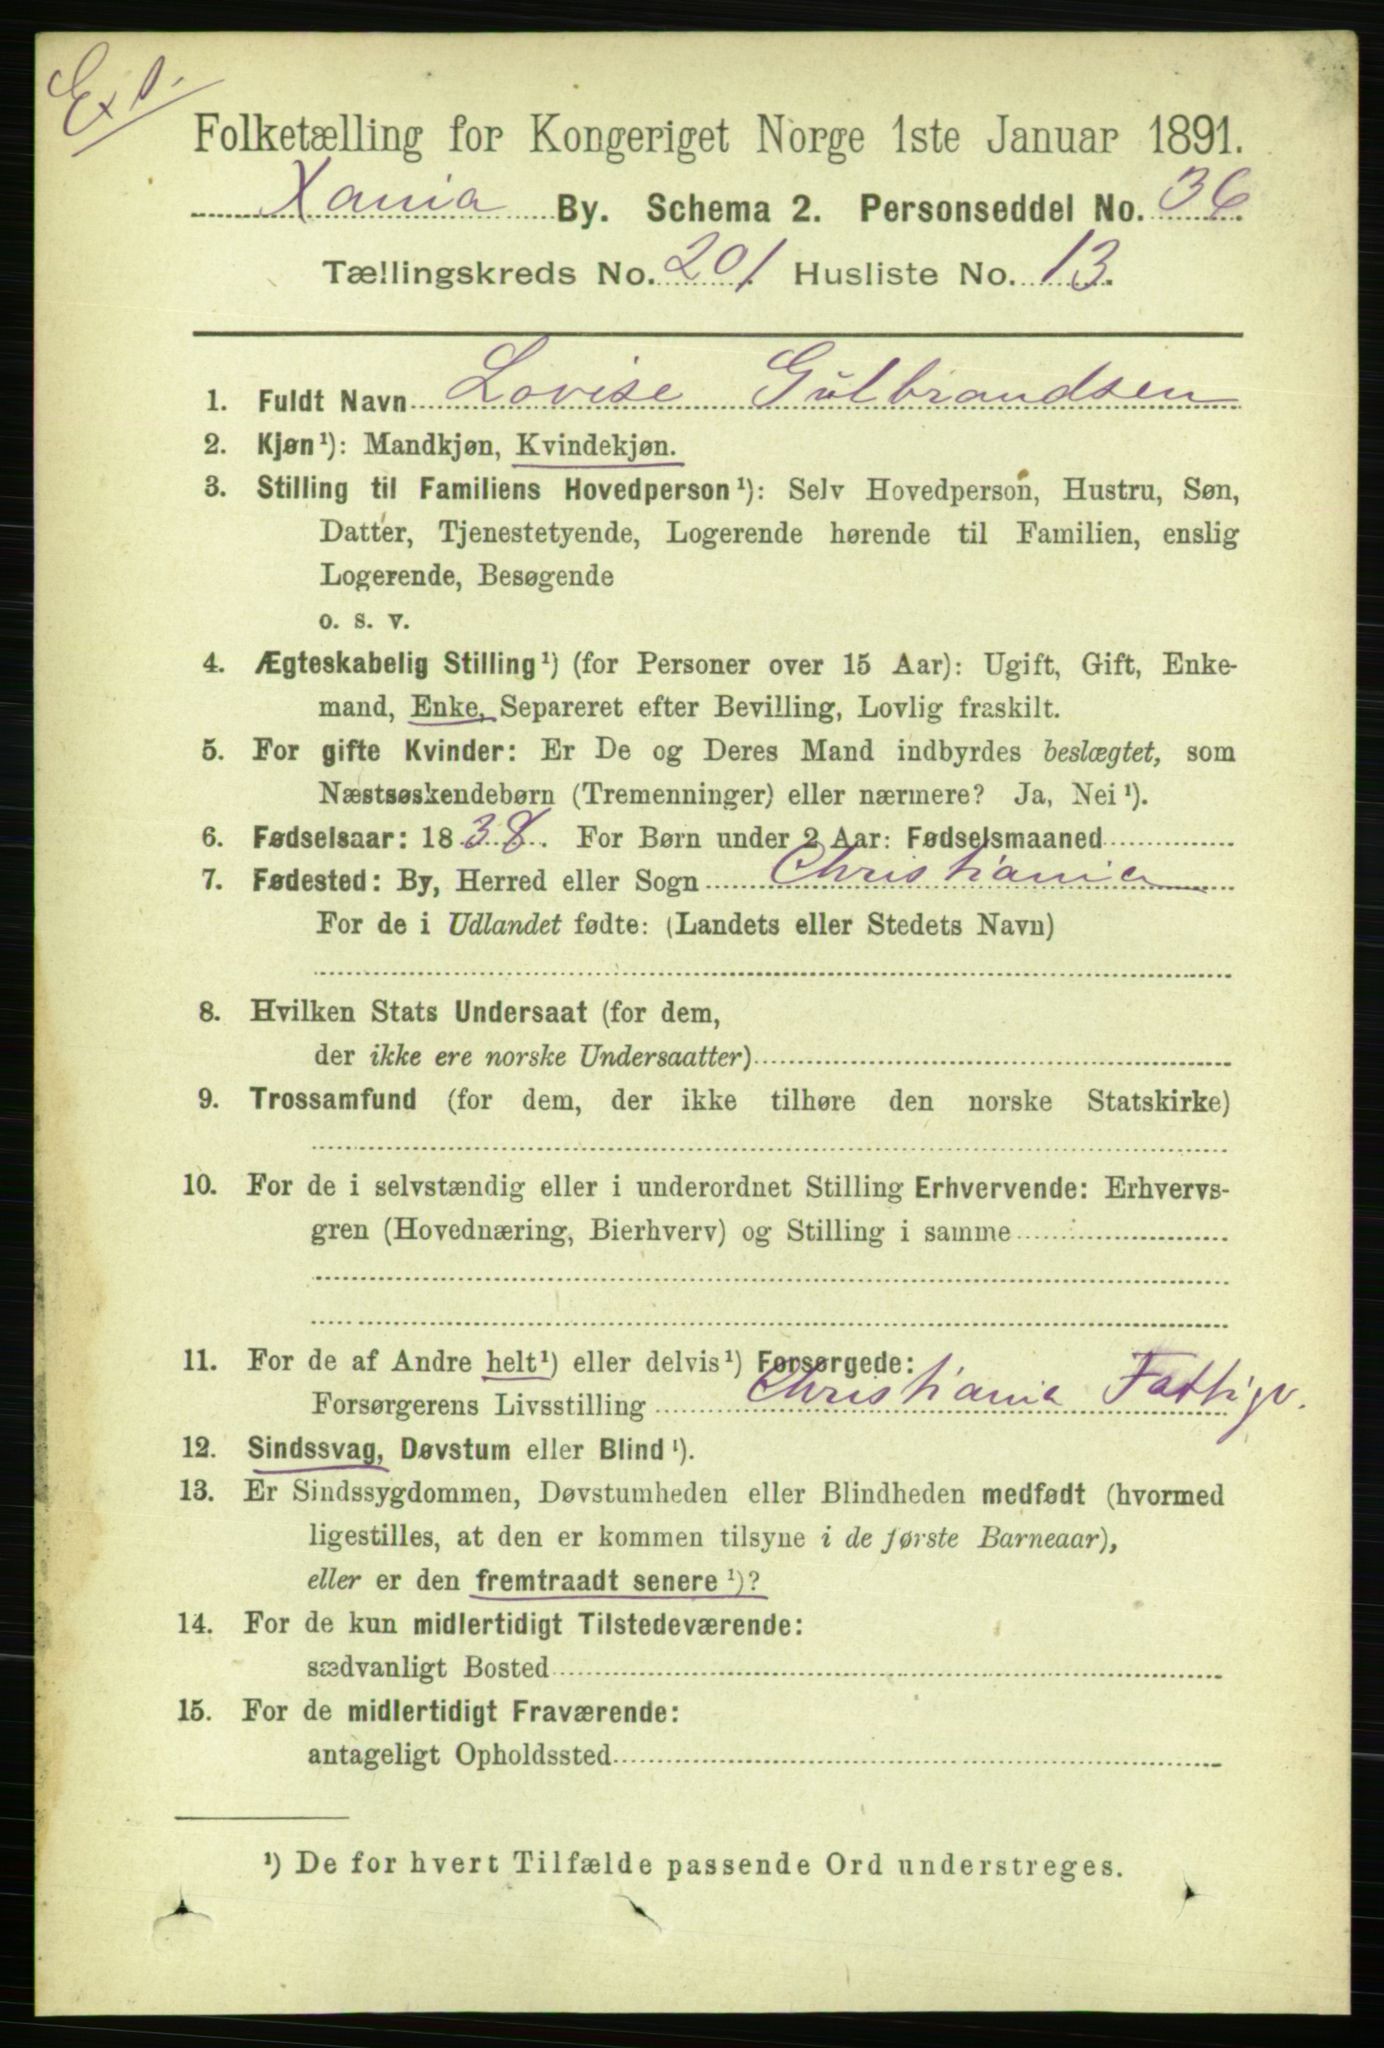 Folketælling for Kongeriget Norge 1ste Januar 1891.
Xania By. Schema 2. Personseddel No. 36
Tællingskreds No. 201 Husliste No. 13.
1. Fuldt Navn Lovise Gülbrandsen
2. Kjøn¹): Mandkjøn, Kvindekjøn.
3. Stilling til Familiens Hovedperson¹): Selv Hovedperson, Hustru, Søn,
Datter, Tjenestetyende, Logerende hørende til Familien, enslig
Logerende, Besøgende
o. s. v.
4. Ægteskabelig Stilling¹) (for Personer over 15 Aar): Ugift, Gift, Enke-
mand, Enke, Separeret efter Bevilling, Lovlig fraskilt.
5. For gifte Kvinder: Er De og Deres Mand indbyrdes beslægtet, som
Næstsøskendebørn (Tremenninger) eller nærmere? Ja, Nei¹).
6. Fødselsaar: 1838. For Børn under 2 Aar: Fødselsmaaned
7. Fødested: By, Herred eller Sogn Christiania
For de i Udlandet fødte: (Landets eller Stedets Navn)
8. Hvilken Stats Undersaat (for dem,
der ikke ere norske Undersaatter)
9. Trossamfund (for dem, der ikke tilhøre den norske Statskirke)
10. For de i selvstændig eller i underordnet Stilling Erhvervende: Erhvervs-
gren (Hovednæring, Bierhverv) og Stilling i samme
11. For de af Andre helt¹) eller delvis¹) Forsørgede:
Forsørgerens Livsstilling Christiania Fattigv.
12. Sindssvag, Døvstum eller Blind¹).
13. Er Sindssygdommen, Døvstumheden eller Blindheden medfødt (hvormed
ligestilles, at den er kommen tilsyne i de første Barneaar),
eller er den fremtraadt senere¹)?
14. For de kun midlertidigt Tilstedeværende:
sædvanligt Bosted
15. For de midlertidigt Fraværende:
antageligt Opholdssted
¹) De for hvert Tilfælde passende Ord understreges.